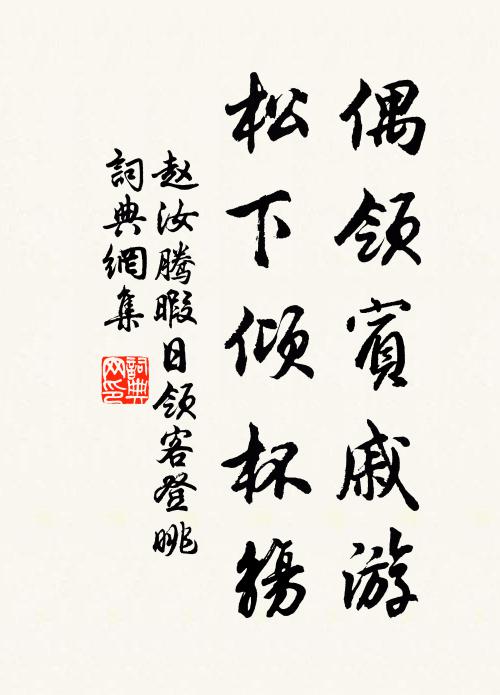 偶領賓戚游
松下傾杯觴
赵汝腾暇日领客登眺
詞典網集
詞典网印